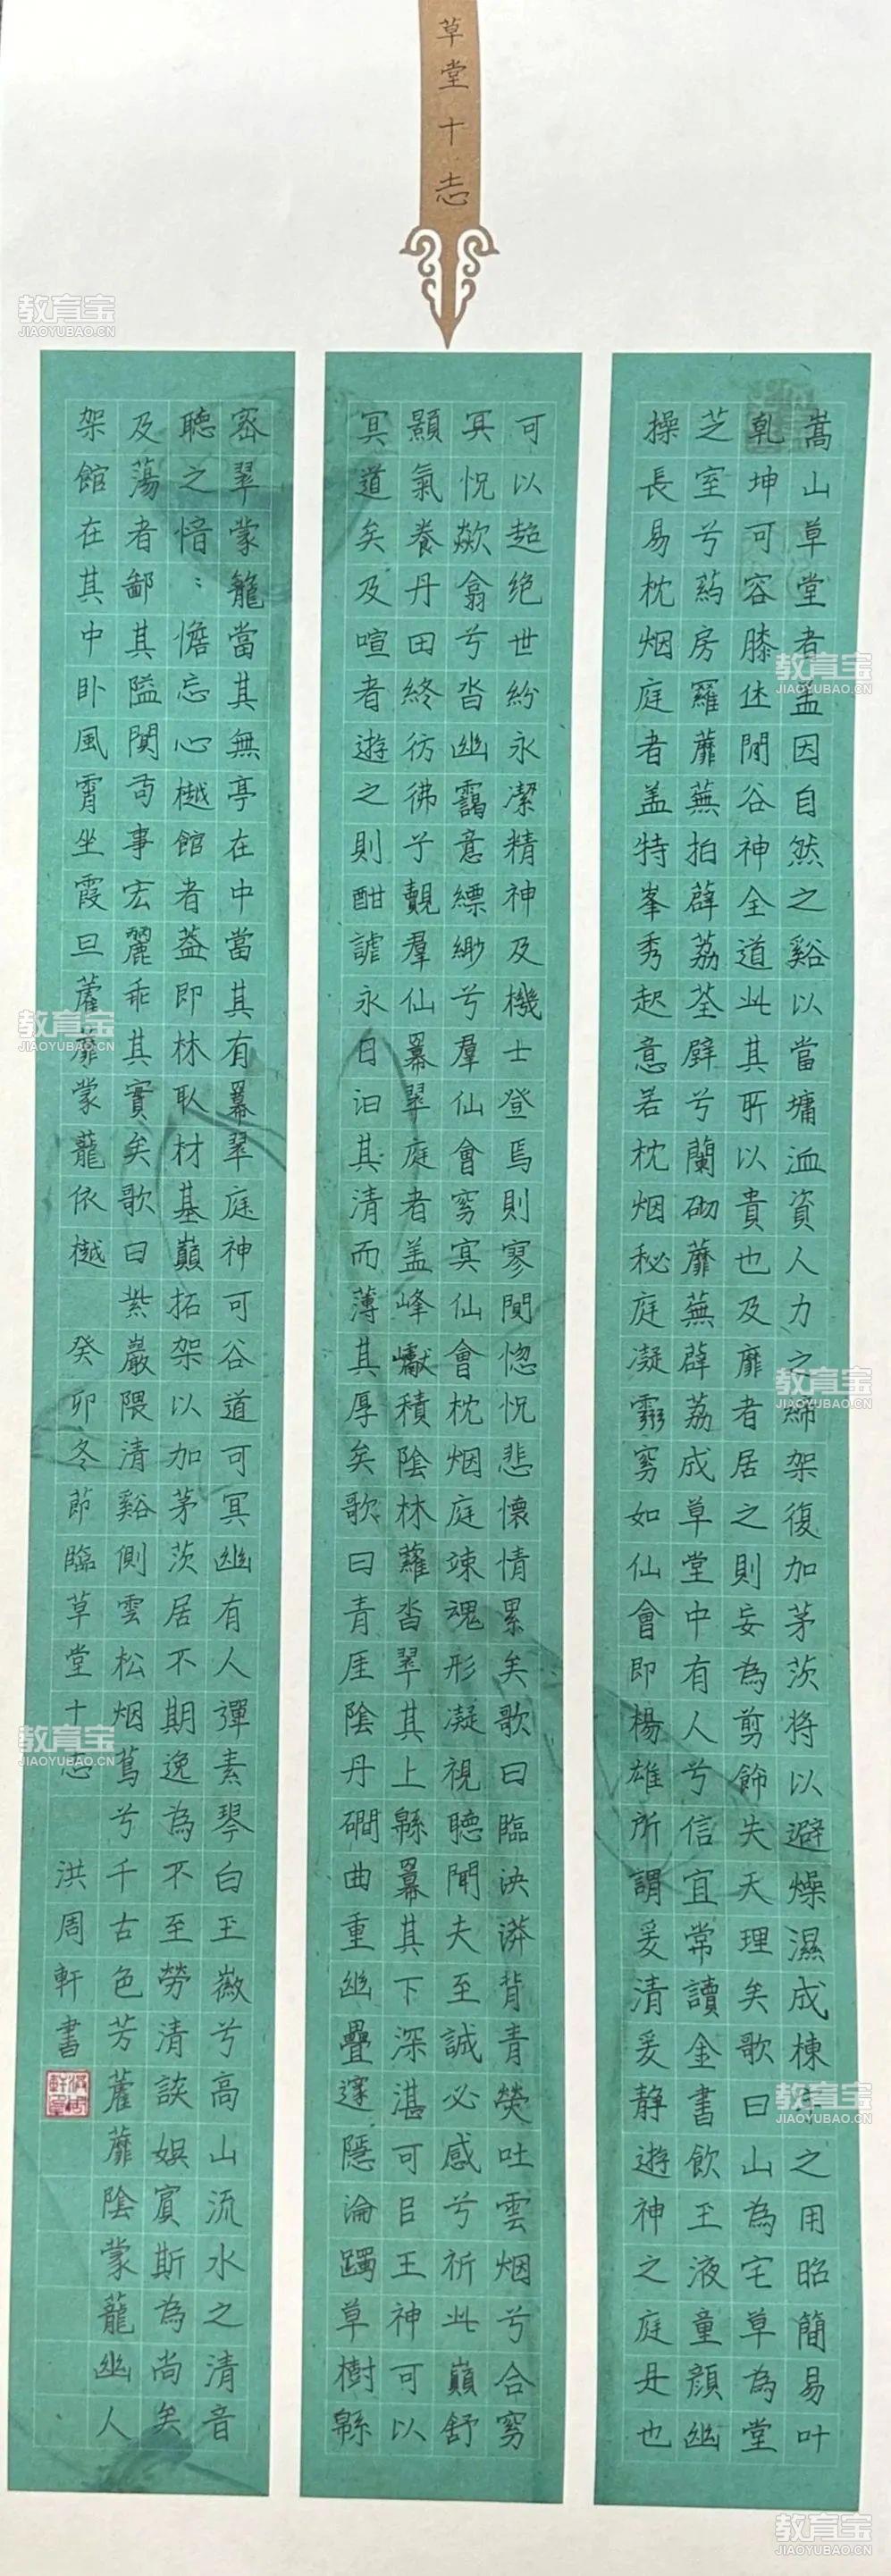 草堂十志
嵩山草堂者盖因自然之谿以當墉洫資人力之締架復加茅茨将以避燥濕成棟宇之用昭簡易叶
乾坤可容膝休閒谷神全道此其所以貴也及靡者居之則妄為剪飾失天理矣歌曰山為宅草為堂
芝室兮葯房羅蘼蕪拍薜荔荃壁兮蘭砌蘼蕪薜荔成草堂中有人兮信宜常讀金書飲玉液童顔幽
操長易枕烟庭者盖特峯秀起意若枕烟秘庭凝窈如仙會即楊雄所謂爰清爰静遊神之庭是也
可以超绝世紛永潔精神及機士登焉則寥閴惚怳悲懷情累矣歌曰臨泱漭背青熒吐雲烟兮合窈
冥怳欻翕兮沓幽靄意縹緲兮羣仙會窈冥仙會枕烟庭竦魂形凝視聽聞夫至誠必感兮祈此巔舒
顥氣養丹田終彷彿兮覿羣仙羃翠庭者盖峰巘積陰林蘿沓翠其上緜羃其下深湛可㠯王神可以
冥道矣及喧者遊之則酣謔永日汩其清而薄其厚矣歌曰青厓陰丹磵曲重幽疊邃隱淪躅草樹緜
密翠蒙籠當其無亭在中當其有羃翠庭神可谷道可冥幽有人彈素琴白玉徽兮高山流水之清音
聽之愔〻憺忘心樾館者葢即林取材基巔拓架以加茅茨居不期逸為不至勞清談娛賓斯為尚矣
及蕩者鄙其隘閴苟事宏麗乖其實矣歌曰紫巖隈清谿側雲松烟蔦兮千古色芳蘼陰蒙蘢幽人
架館在其中卧風霄坐霞旦蘼蒙蘢依樾 癸卯冬節臨草堂十志 洪周軒書
教育宝
JIAOYUBAO.CN
教育宝
JIAOYUBAO.CN
教育宝
JIAOYUBAO.CN
教育宝
JIAOYUBAO.CN
教育宝
JIAOYUBAO.CN
教育宝
JIAOYUBAO.CN
教育宝
JIAOYUBAO.CN